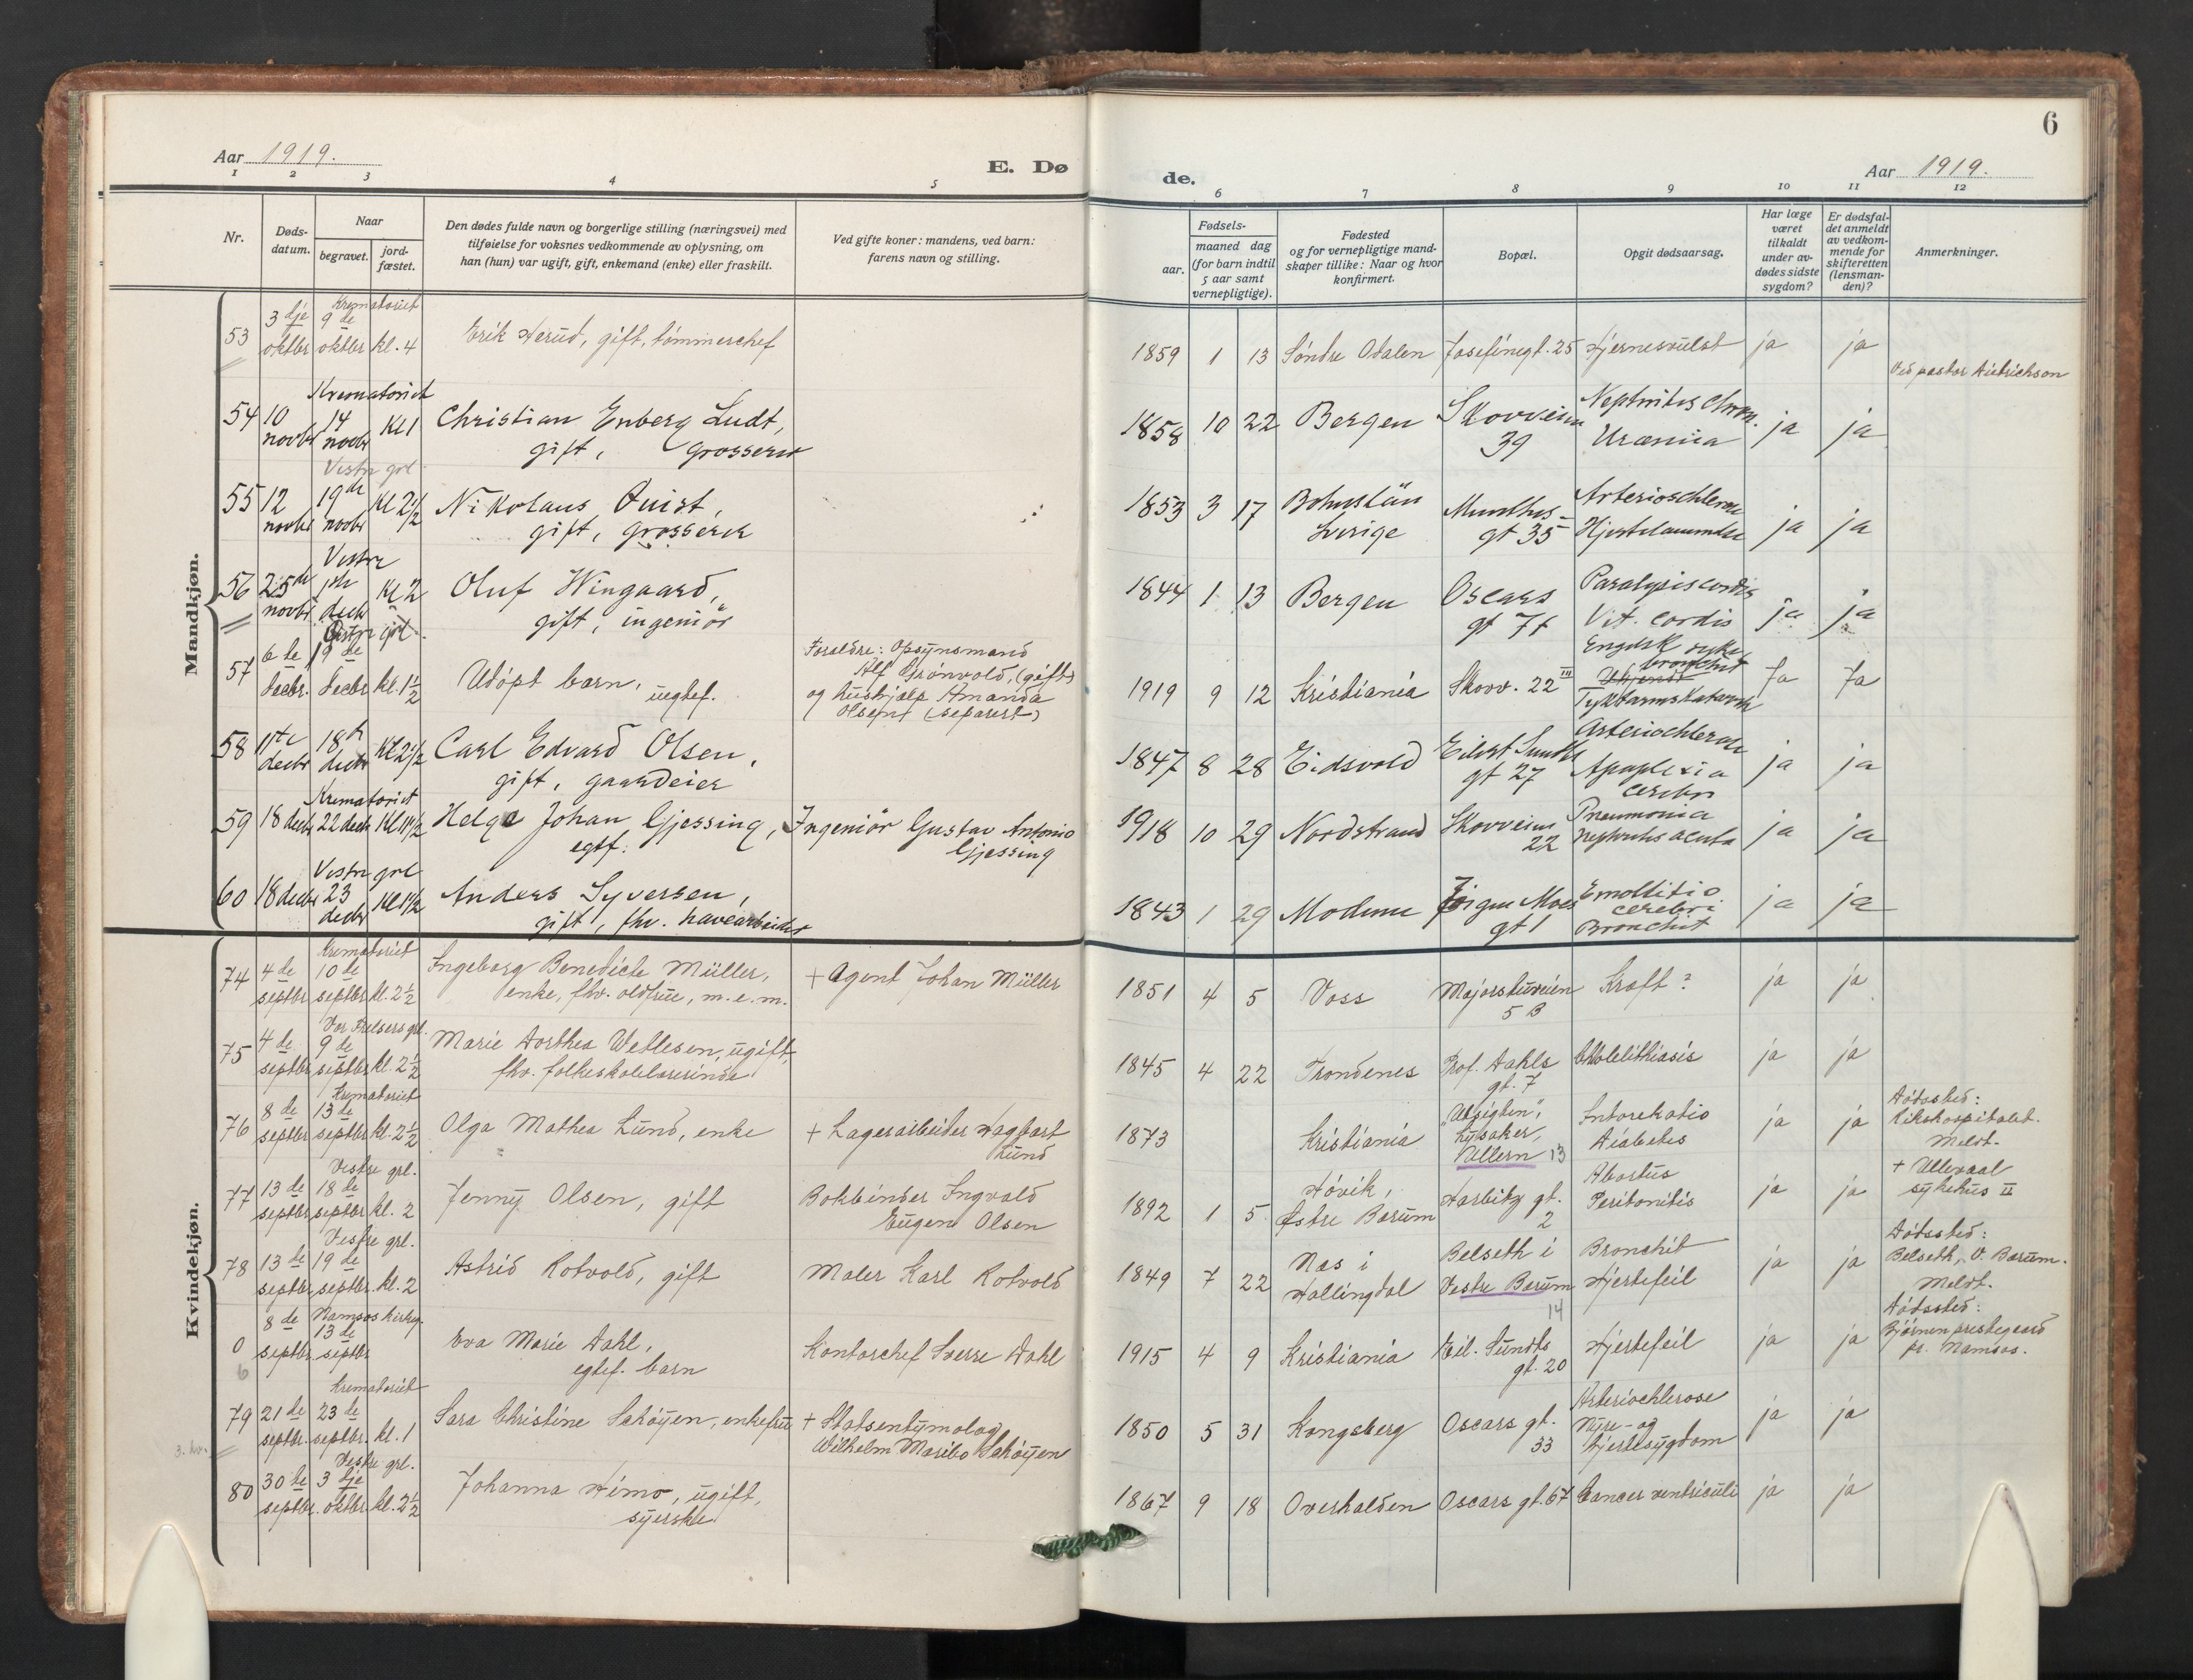 6
Aar 1919.
E. Dø
de.
Aar 1919.
1 2 3 4 5
6 7 8 9 10 11 12
Nr.
Døds-
datum.
Naar
begravet.
jord-
fæstet.
Den dødes fulde navn og borgerlige stilling (næringsvei) med
tilføielse for voksnes vedkommende av oplysning, om
han (hun) var ugift, gift, enkemand (enke) eller fraskilt.
Ved gifte koner: mandens, ved barn:
farens navn og stilling.
Fødsels-
aar.
maaned dag
(for barn indtil
5 aar samt
vernepligtige).
Fødested
og for vernepligtige mand-
skaper tillike: Naar og hvor
konfirmert.
Bopæl.
Opgit dødsaarsag.
Har læge
været
tilkaldt
under av-
dødes sidste
sygdom?
Er dødsfal-
det anmeldt
av vedkom-
mende for
skifteretten
(lensman-
den)?
Anmerkninger.
Mandkjøn.
Krematoriet
53 3 dje oktbr 9 de oktbr kl. 4
Erik Herud, gift, tømmerchef
1859 1 13 Søndre Odalen Josefinegt. 25 Hjernesvulst ja ja
Ved pastor Dietrichson
Krematoriet
54 10 novbr 14 novbr Kl 1
Christian Enberg Ludt,
gift, Grosserer
1858 10 22 Bergen Skovveien 39
Nephritis chron.
Uræmia
ja ja
Vestre grl.
55 12 novbr 19de novbr Kl 2 1/2
Nikolaus Quist,
gift, grosserer
1853 3 17 Bohuslän
Sverige
Munthes-
gt 35
Arteriosclerose
Hjertelammelse
ja ja
Vestre
56 25de novbr 1ste decbr Kl 2
Oluf Wingaard,
gift, ingeniör
1844 1 13 Bergen Oscars
gt 71
Paralysis cordis
Vit. cordis
ja ja
Vestre grl.
57 6 te decbr. 19 de decbr kl. 1 1/2
Udøpt barn, uegtef.
Forældre: Opsynsmand
Alf Grønvold, (gift)
og hushjælp Amanda
Olsen (separert)
1919 9 12 Kristiania Skovv. 22 III
Engelsk syke,
bronchit
Ukjendt
Tyktarmskatarrh
Ja Ja
58 11te decbr 18de decbr Kl 2 1/2
Carl Edvard Olsen,
gift, gaardeier
1847 8 28 Eidsvold Eilert Sundts
gt 27
Arteriosclerose
Apoplexia
cerebri
ja ja
Krematoriet
59 18 decbr 22 decbr Kl 11 1/2
Helge Johan Gjessing,
egtf.
Ingeniör Gustav Antonio
Gjessing
1918 10 29 Nordstrand Skovveien
22
Pneumonia
Nephritis acuta
ja ja
Vestre grl
60 18 decbr 23 decbr Kl 1 1/2
Anders Syversen,
gift, fhv. havearbeider
1843 1 29 Modum Jörgen Moes
gt 1
Emollitio
cerebri
Bronchit
ja ja
Kvindekjøn.
Krematoriet
74 4 de septbr 10 de septbr kl. 2 1/2
Ingeborg Benedicte Müller,
enke, fhv. oldfrue, m. e. m.
+ Agent Johan Müller
1851 4 5 Voss Majorstuveien
5 B
Kræft? ja ja
Vor Frelsers grl.
75 4 de septbr 9 de septbr kl. 2 1/2
Marie Dorthea Wetlesen, ugift,
fhv. folkeskolelærerinde
1845 4 22 Trondenes Prof. Dahls
gt. 7
Cholelithiasis ja ja
Krematoriet
76 8 de septbr 13 de septbr kl. 2 1/2
Olga Mathea Lund, enke
+ Lagerarbeider Dagbart
Lund
1873 Kristiania "Utsigten",
Lysaker,
Ullern 13
Intoxikatio
Diabetes
ja ja
Dødssted:
Rikshospitalet.
Meldt.
Vestre grl.
77 13 de septbr 18 de septbr kl. 2
Jenny Olsen, gift
Bokbinder Ingvald
Eugen Olsen
1892 1 5 Høvik,
Østre Bærum
Harbitz gt.
2
Abortus
Peritonitis
ja ja
+ Ullevaal
sykehus II
Vestre grl.
78 13 de septbr 19 de septbr. kl. 2
Astrid Rotvold, gift
Maler Karl Rotvold
1849 7 22 Nes i
Hallingdal
Belseth i
Vestre Bærum
14
Bronchit
Hjertefeil
ja ja
Dødssted:
Belseth, V. Bærum.
Meldt.
Namsos kirkeg.
0 8 de septbr. 13 de septbr
6
Eva Marie Dahl,
egtef. barn
Kontorchef Sverre Dahl
1915 4 9 Kristiania Eil. Sundts
gt. 20
Hjertefeil ja ja
Dødssted:
Bjørnen prestegaard
pr. Namsos.
Krematoriet
79 21 de septbr. 23 de septbr. kl. 1
Sara Christine Schøyen, enkefrue
+ Statsentymolog
Wilhelm Maribo Schøyen
1850 5 31 Kongsberg Oscars gt.
33
Arteriosclerose
Nyre- og
hjertesygdom
ja ja
Vestre grl.
80 30 te septbr. 3 dje oktbr. kl. 2 1/2
Johanna Himo, ugift,
syerske
1867 9 18 Overhalden Oscars gt. 67 Cancer ventriculi ja ja